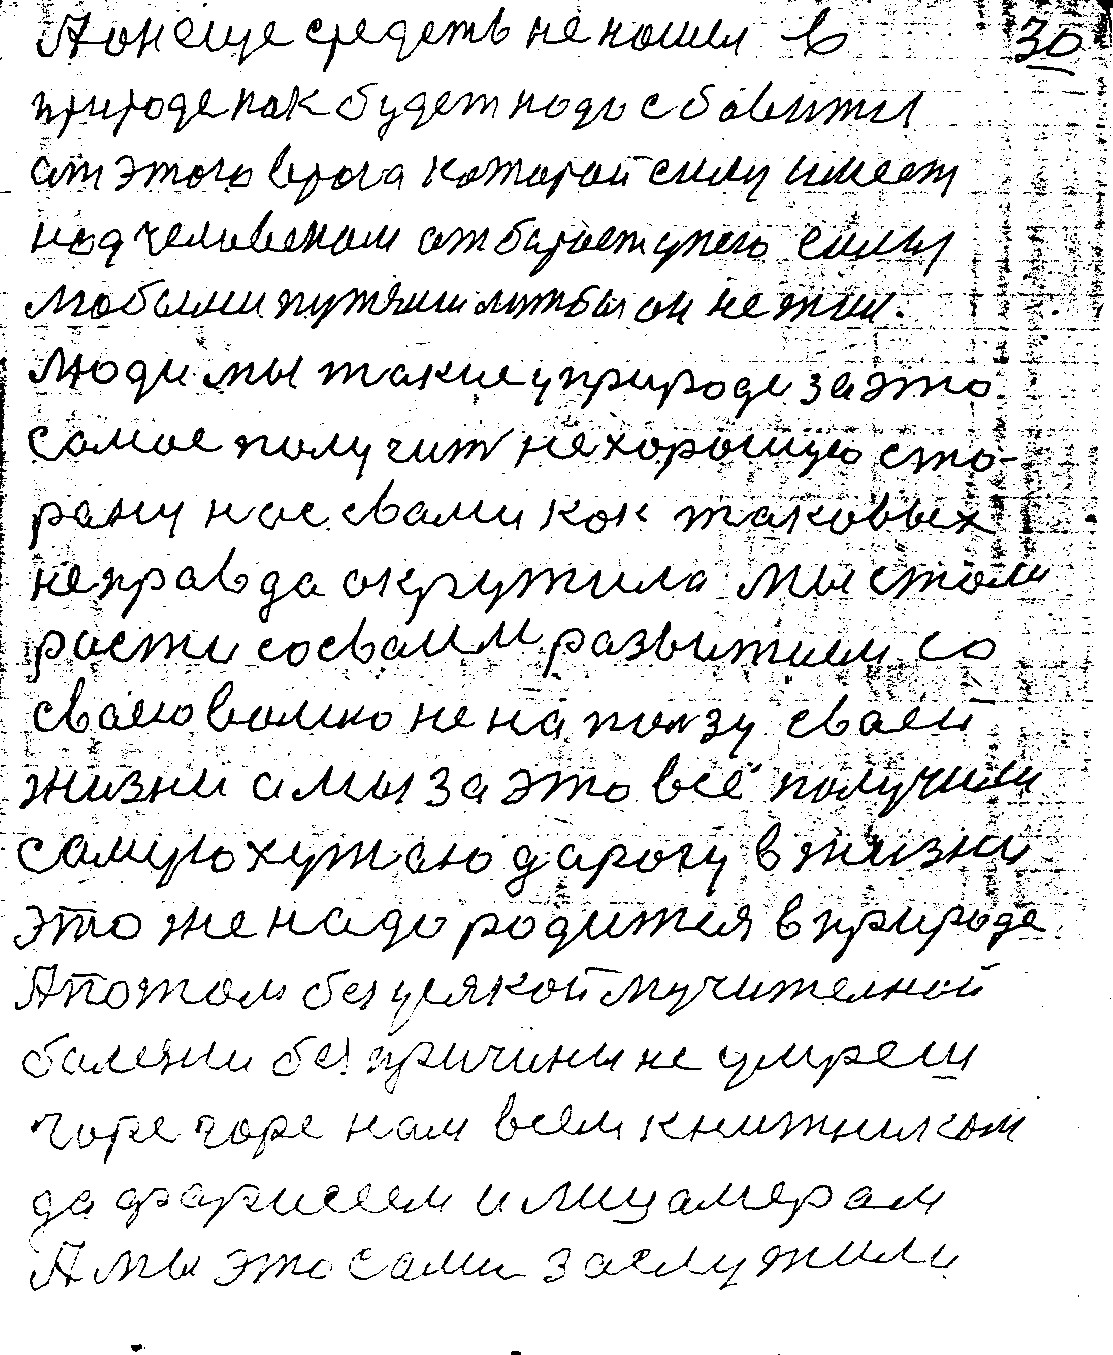 А он еще средств не нашел в 36
природе как будет надо сбавитя
ат этого врага каторай силу имеет
над человекам отбирает у него силы
любыми путями литбы он не жил.
Люди мы такие у природе за это
самое получит нехорошую сто-
рану нас свами как таковых
неправда окружила мы стали
расти сосваим развитием со
сваею волию не на ползу сваей
жизни а мы за это всё получили
самую хутшаю дарогу в жизни
это же надо родится в природе
А потом без усякой мучителной
балезни без причины не умреш
горе горе нам всем книжникам
да фарисеем и лицамерам
А мы это сами заслужили